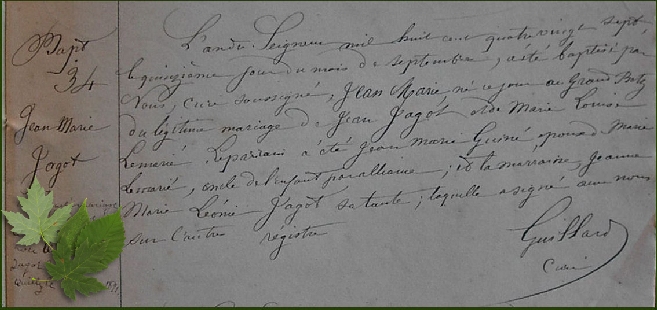 Bapt
34
Jean Marie
Jagot
L'an du Seigneur mil huit cent quatre vingt sept
le quinzième jour du mois de septembre, a été baptisé par
Nous, curé soussigné, Jean Marie né ce jour au Grand
du légitime mariage de Jean Jagot et de Marie Louise
Lemarié. Le parrain a été Jean Marie Guiné époux de Marie
Lemarié, oncle de l'enfant par alliance; et la marraine, Jeanne
Marie Léonie Jagot sa tante; laquelle a signé avec nous
sur l'autre registre
Guillard
Curé